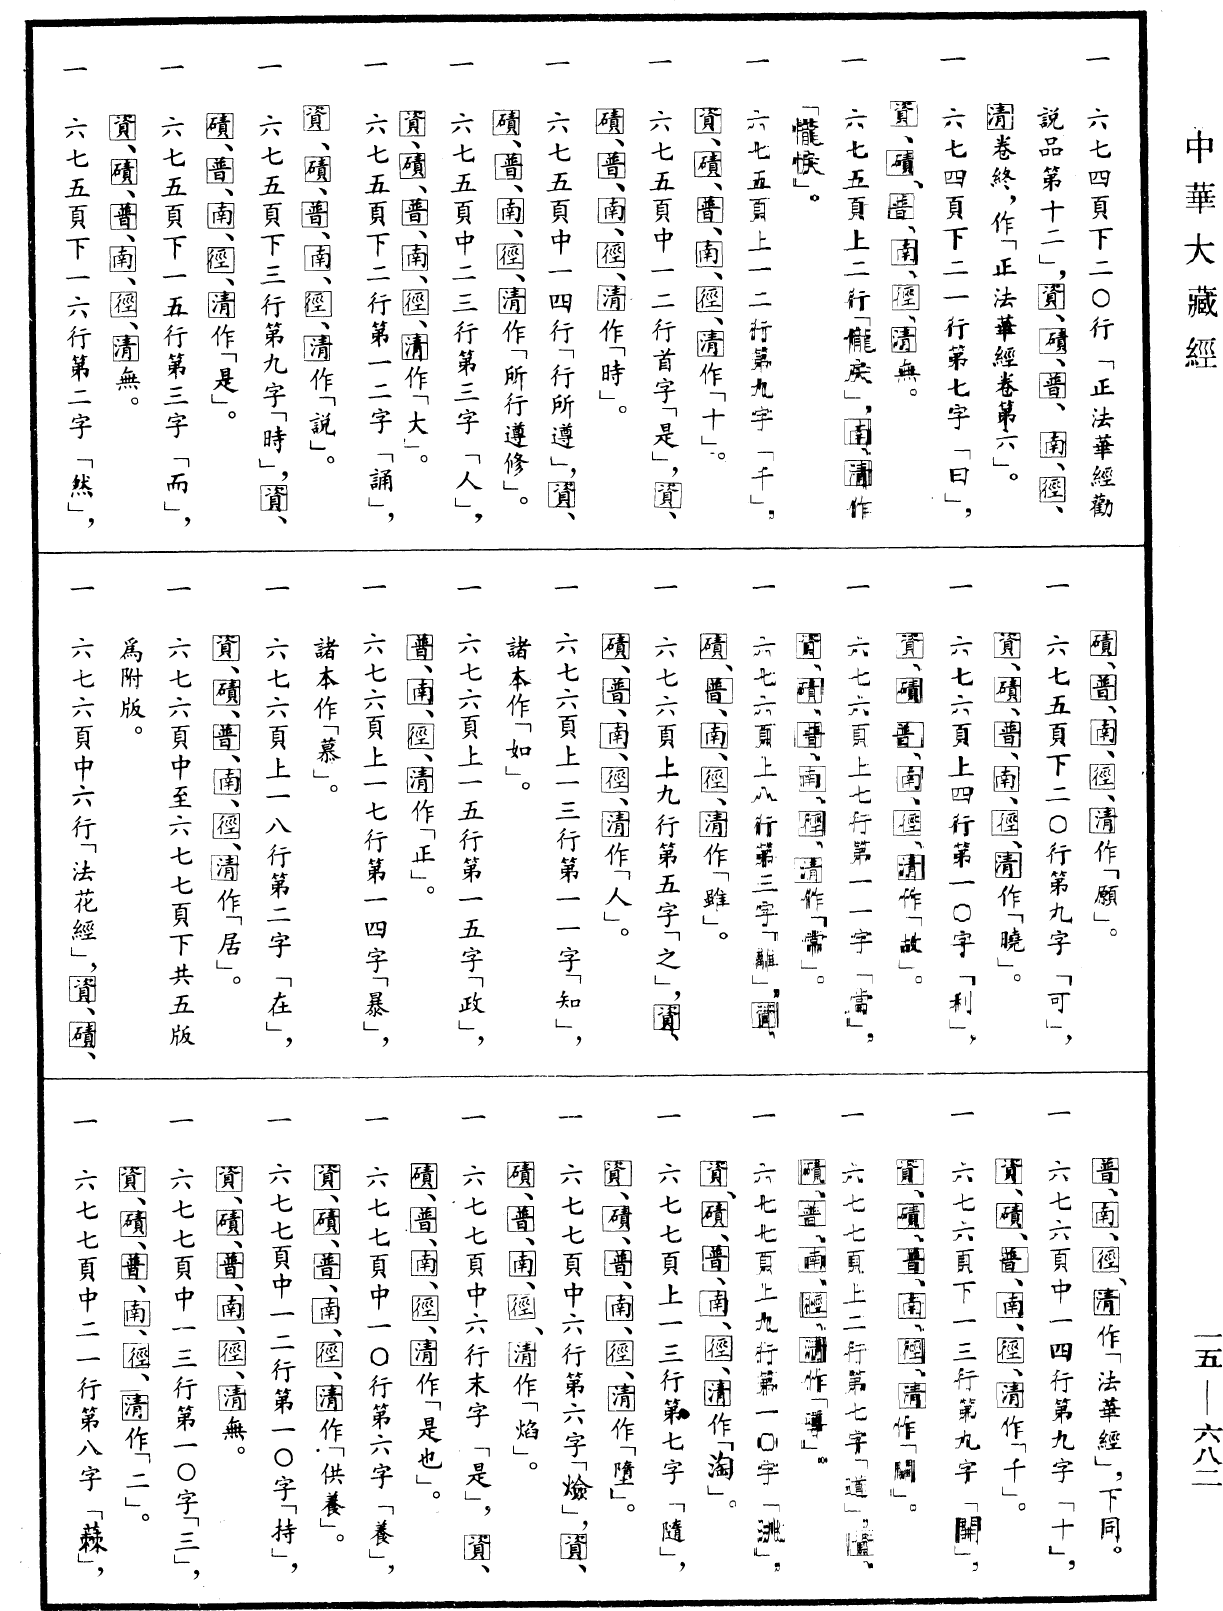 中華大藏經
一　六七四頁下二〇行「正法華經勸
説品第十二」，資、磧、普、南、徑、
清卷終，作「正法華經卷第六」。
一　六七四頁下二一行第七字「曰」，
資、磧、普、南、徑、清無。
一　六七五頁上二行「儱戾」，南、清作
「儱悷」。
一　六七五頁上一二行第九字「千」，
資、磧、普、南、徑、清作「十」。
一　六七五頁中一二行首字「是」，資、
磧、普、南、徑、清作「時」。
一　六七五頁中一四行「行所遵」，資、
磧、普、南、徑、清作「所行遵修」。
一　六七五頁中二三行第三字「人」，
資、磧、普、南、徑、清作「大」。
一　六七五頁下二行第一二字「誦」，
資、磧、普、南、徑、清作「説」。
一　六七五頁下三行第九字「時」，資、
磧、普、南、徑、清作「是」。
一　六七五頁下一五行第三字「而」，
資、磧、普、南、徑、清無。
一　六七五頁下一六行第二字「然」，
磧、普、南、徑、清作「願」。
一　六七五頁下二〇行第九字「可」，
資、磧、普、南、徑、清作「曉」。
一　六七六頁上四行第一〇字「利」，
資、磧、普、南、徑、清作「故」。
一　六七六頁上七行第一一字「當」，
資、磧、普、南、徑、清作「常」。
一　六七六頁上八行第三字「離」，資、
磧、普、南、徑、清作「雖」。
一　六七六頁上九行第五字「之」，資、
磧、普、南、徑、清作「人」。
一　六七六頁上一三行第一一字「知」，
諸本作「如」。
一　六七六頁上一五行第一五字「政」，
普、南、徑、清作「正」。
一　六七六頁上一七行第一四字「暴」，
諸本作「慕」。
一　六七六頁上一八行第二字「在」，
資、磧、普、南、徑、清作「居」。
一　六七六頁中至六七七頁下共五版
爲附版。
一　六七六頁中六行「法花經」，資、磧、
普、南、徑、清作「法華經」，下同。
一　六七六頁中一四行第九字「十」，
資、磧、普、南、徑、清作「千」。
一　六七六頁下一三行第九字「開」，
資、磧、普、南、徑、清作「聞」。
一　六七七頁上二行第七字「道」，資、
磧、普、南、徑、清作「導」。
一　六七七頁上九行第一〇字「洮」，
資、磧、普、南、徑、清作「淘」。
一　六七七頁上一三行第七字「隨」，
資、磧、普、南、徑、清作「墮」。
一　六七七頁中六行第六字「爓」，資、
磧、普、南、徑、清作「焰」。
一　六七七頁中六行末字「是」，資、
磧、普、南、徑、清作「是也」。
一　六七七頁中一〇行第六字「養」，
資、磧、普、南、徑、清作「供養」。
一　六七七頁中一二行第一〇字「持」，
資、磧、普、南、徑、清無。
一　六七七頁中一三行第一〇字「三」，
資、磧、普、南、徑、清作「二」。
一　六七七頁中二一行第八字「蕀」，
一五—六八二